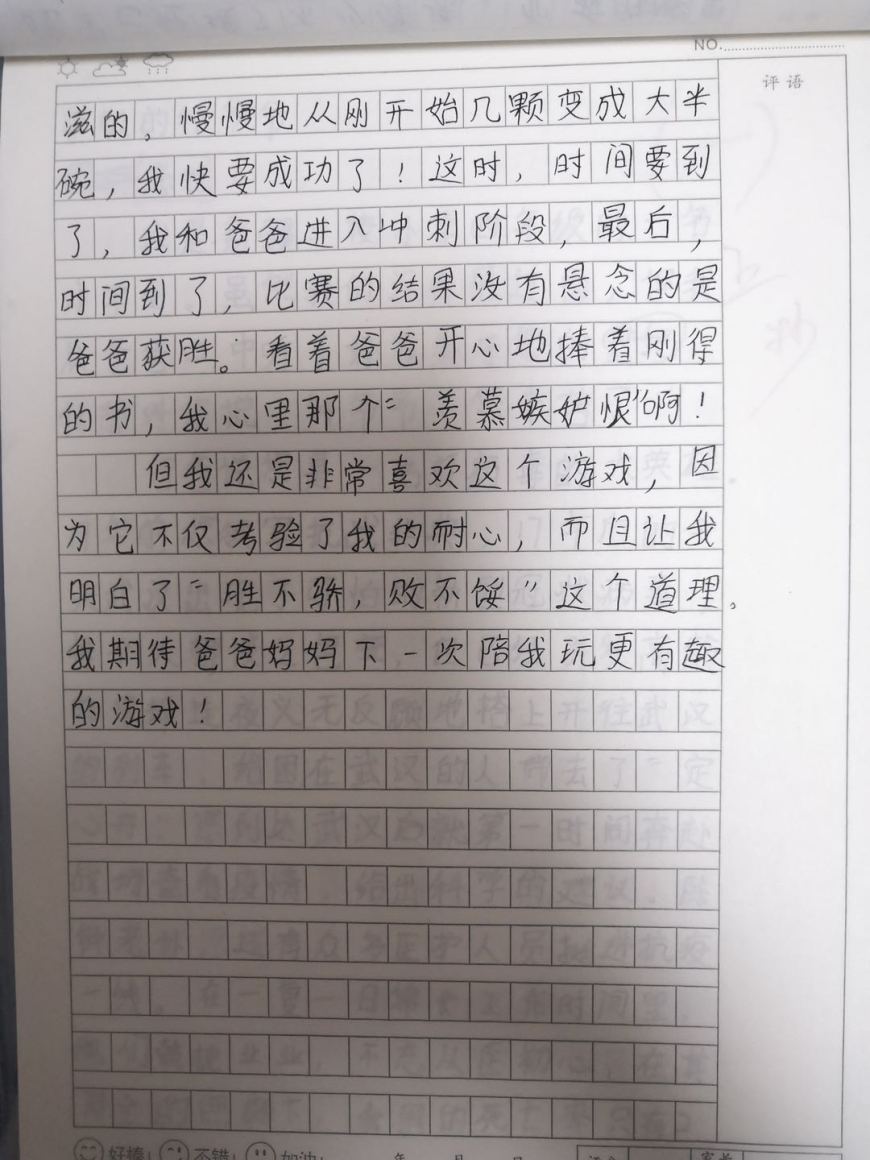 NO.
评语
滋的，慢慢地从刚开始几颗变成大半
碗，我快要成功了！这时，时间要到
了，我和爸爸进入冲刺阶段，最后，
时间到了，比赛的结果没有悬念的是
爸爸获胜。看着爸爸开心地捧着刚得
的书，我心里那个“羡慕嫉妒恨”啊！
但我还是非常喜欢这个游戏，因
为它不仅考验了我的耐心，而且让我
明白了“胜不骄，败不馁”这个道理。
我期待爸爸妈妈下一次陪我玩更有趣
的游戏！
好棒！ 不错！ 加油！ 年 月 日